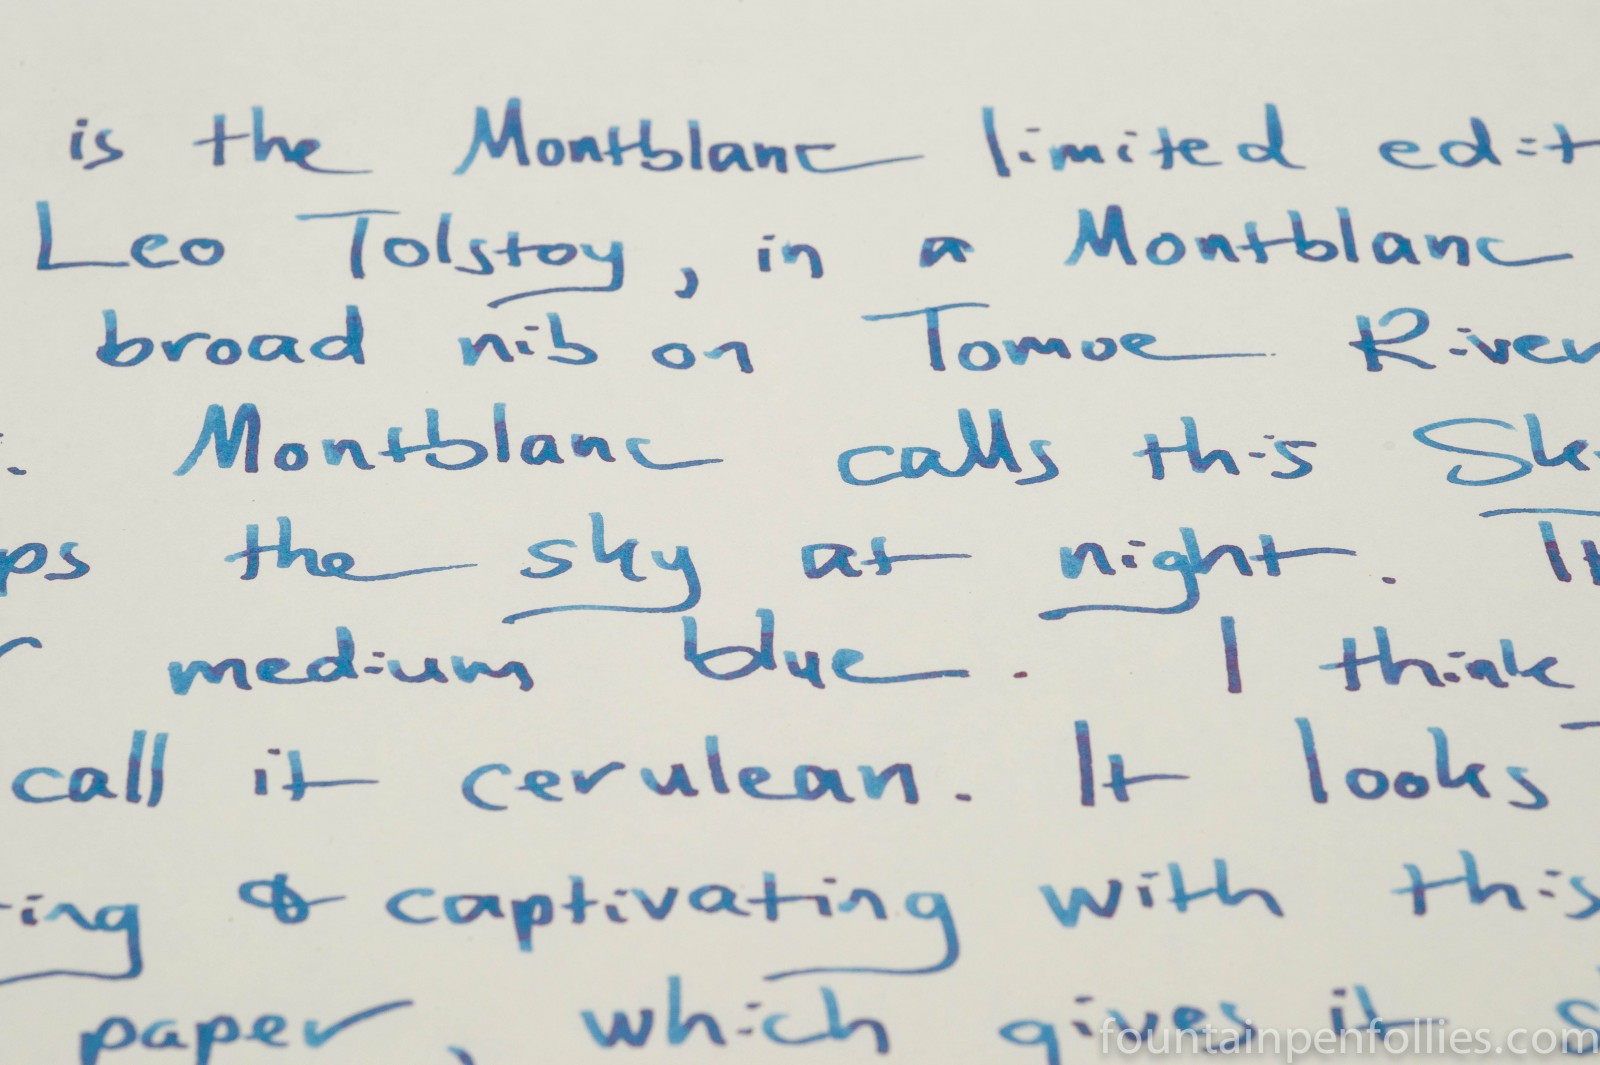 is the Montblanc limited edit
Leo Tolstoy, in a Montblanc
broad nib on Tomoe River
. Montblanc calls this Sk
ps the sky at night. It
medium blue. I think
call it cerulean. It looks
ing & captivating with this
paper, which gives it s
fountainpenfollies.com